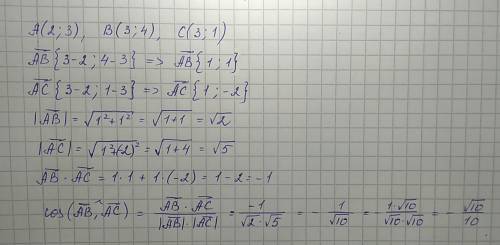 A(2;3), B(3;4), C(3;1)
A̅B̅{3-2; 4-3} => A̅B̅{1; 1}
A̅C̅{3-2; 1-3} => A̅C̅{1; -2}
|A̅B̅| = √(1²+1²) = √(1+1) = √2
|A̅C̅| = √(1²+(-2)²) = √(1+4) = √5
A̅B̅ · A̅C̅ = 1·1 + 1·(-2) = 1-2 = -1
cos(A̅B̅,^A̅C̅) = (A̅B̅ · A̅C̅)/(|A̅B̅|·|A̅C̅|) = -1/(√2·√5) = - 1/√10 = - (1·√10)/(√10·√10) = - √10/10